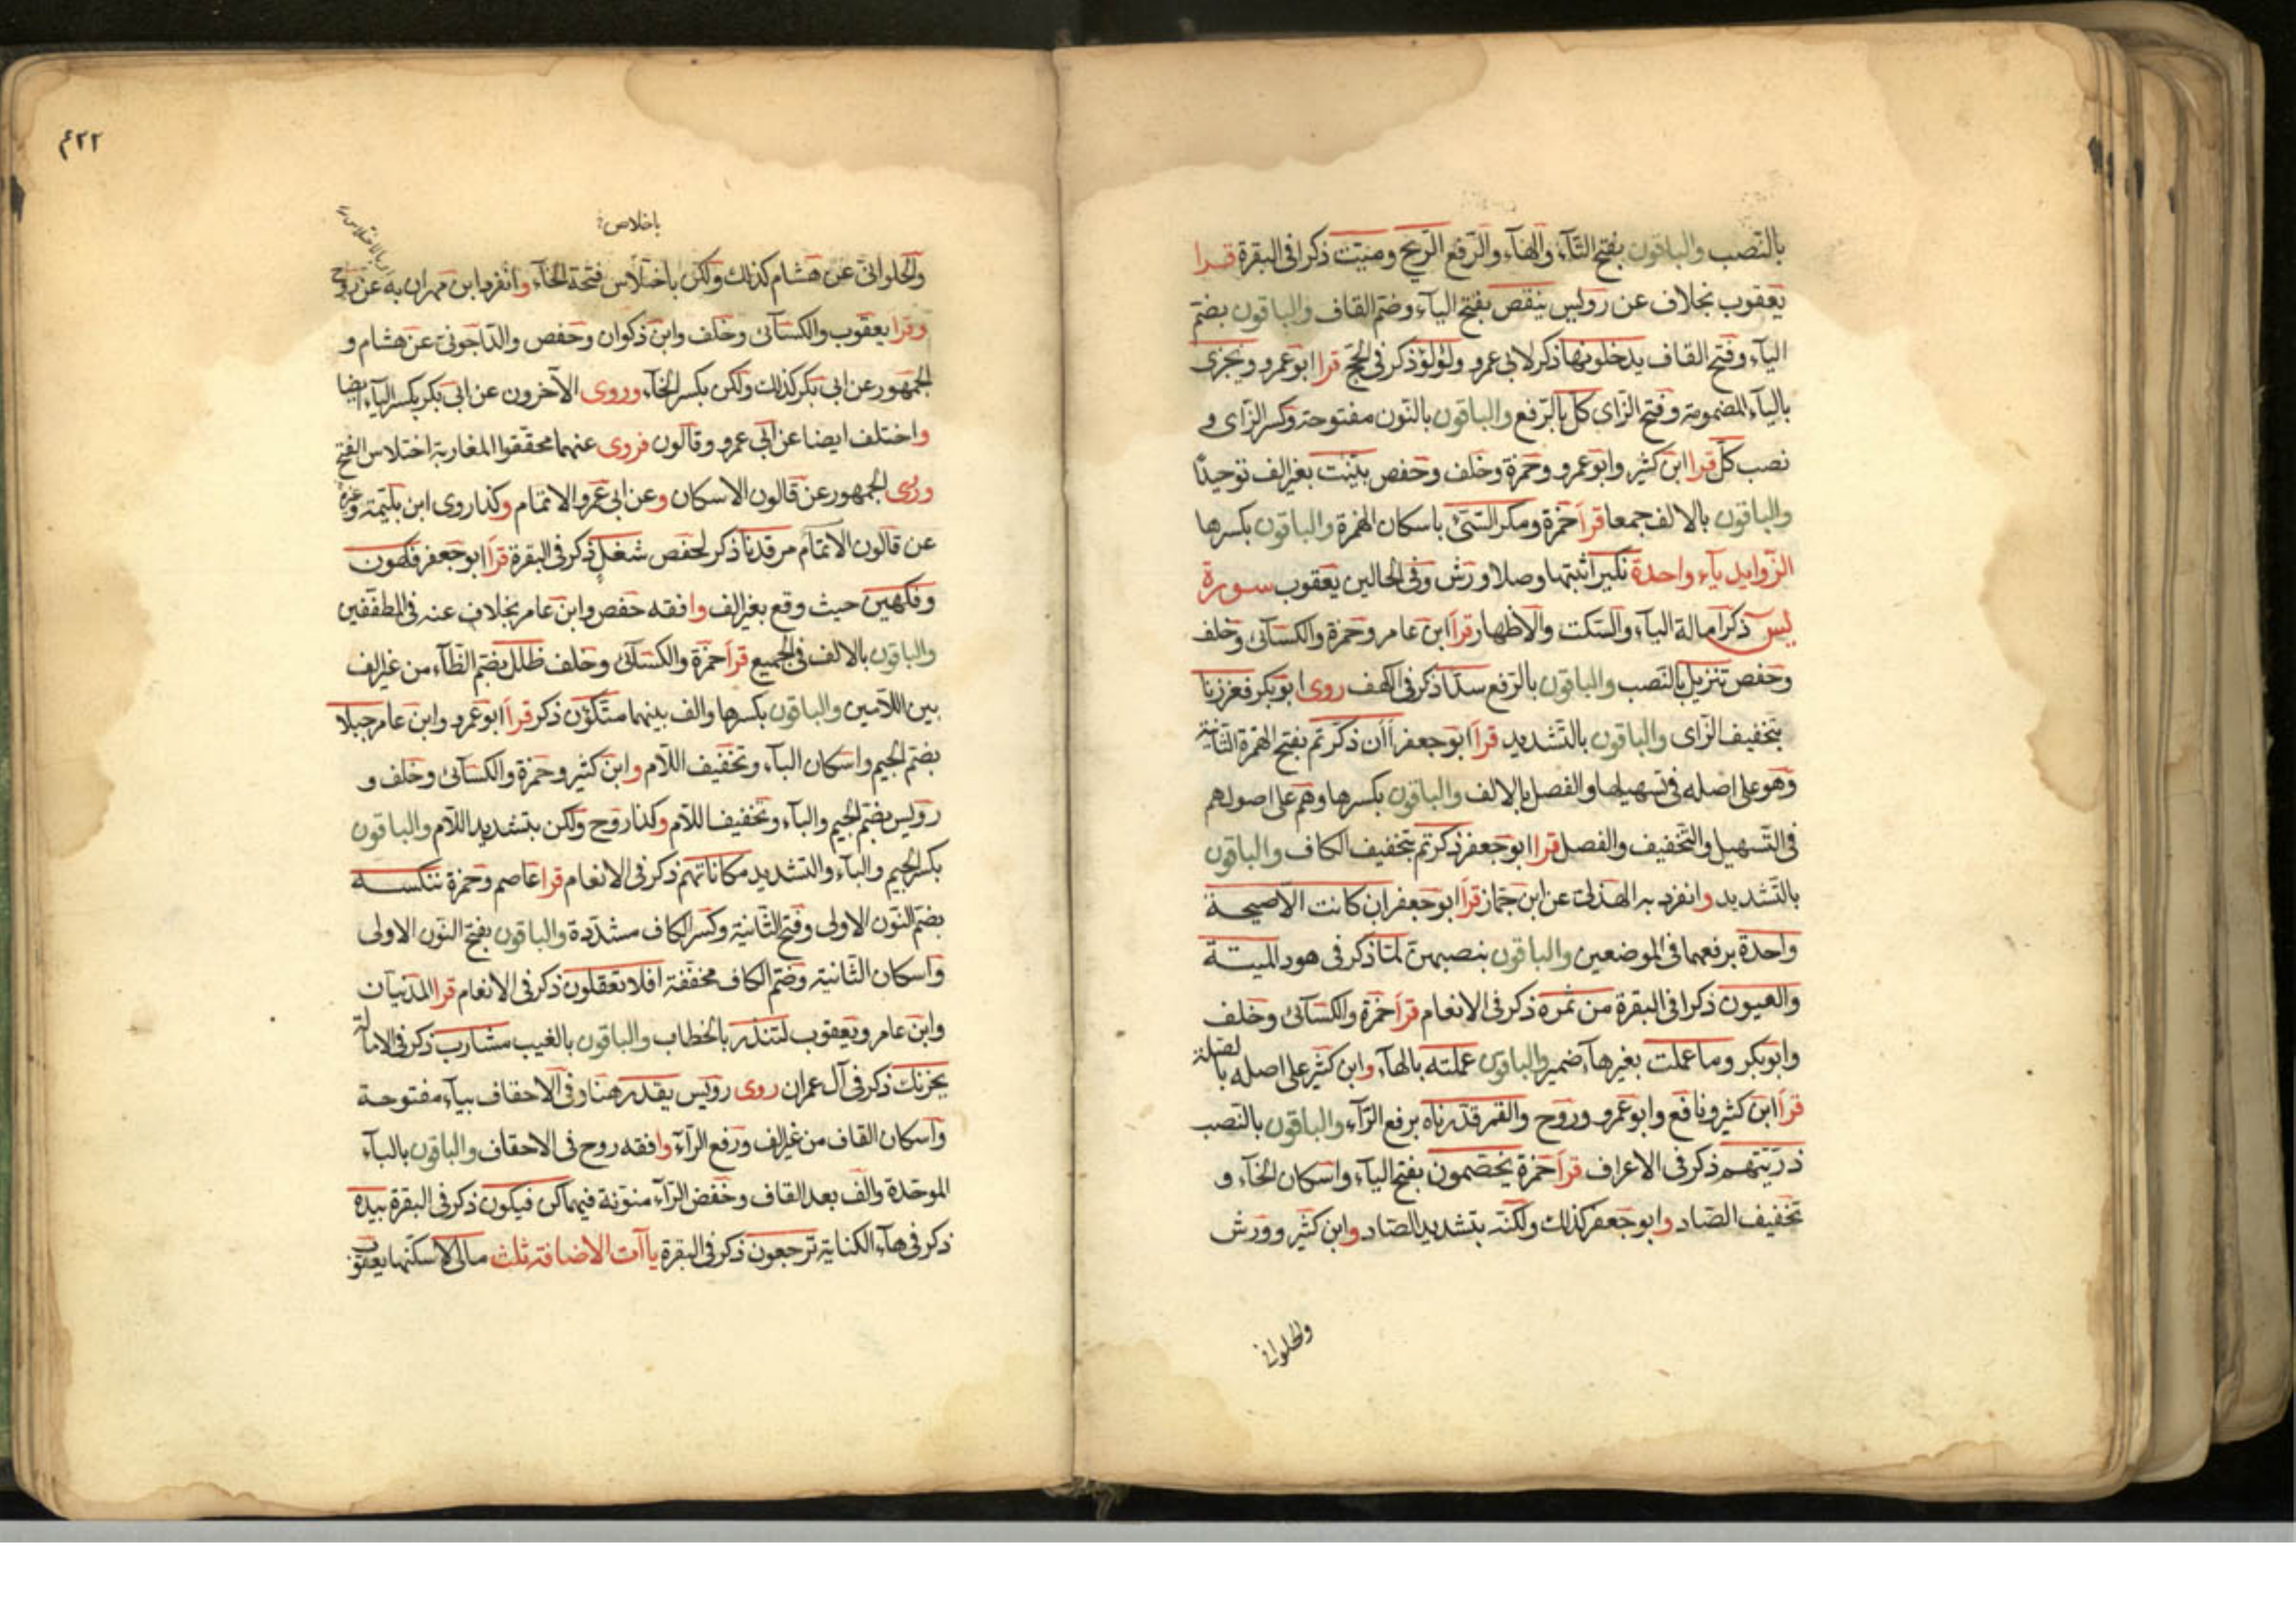 بالنصب والباقون بفتح التاء والهاء والرفع الريح وميت ذكرا فى البقرة قرا
يعقوب بخلاف عن رويس ينقص بفتح الياء وضم القاف والباقون بضم
الياء وفتح القاف يدخلونها ذكر لابى عمرو ولؤلؤ ذكر فى الحج قرا ابو عمرو ويجزى
بالياء المضمومة وفتح الزاى كل بالرفع والباقون بالنون مفتوحة وكسر الزاى و
نصب كل قرا ابن كثير وابو عمرو وحمزة وخلف وحفص بينت بغير الف توحيدا
والباقون بالالف جمعا قرأ حمزة ومكر السيئ باسكان الهمزة والباقون بكسرها
الزوايد ياء واحدة نكير اثبتها وصلا ورش وفى الحالين يعقوب سورة
يس ذكر امالة الياء والسكت والاظهار قرأ ابن عامر وحمزة والكسائى وخلف
وحفص تنزيل بالنصب والباقون بالرفع سدا ذكر فى الكهف روى ابو بكر فعززنا
بتخفيف الزاى والباقون بالتشديد قرأ ابو جعفر أأن ذكرتم بفتح الهمزة الثانية
وهو على اصله فى تسهيلها والفصل بالالف والباقون بكسرها وهم على اصولهم
فى التسهيل والتخفيف والفصل قرا ابو جعفر ذكرتم بتخفيف الكاف والباقون
بالتشديد وانفرد به الهذلى عن ابن جماز قرأ ابو جعفر ان كانت الا صيحة
واحدة برفعهما فى الموضعين والباقون بنصبهن لما ذكر فى هود الميتة
والعيون ذكرا فى البقرة من ثمره ذكر فى الانعام قرأ حمزة والكسائى وخلف
وابو بكر وما عملت بغير هاء ضمير والباقون عملته بالهاء وابن كثير على اصله بالصلة
قرأ ابن كثير ونافع وابو عمرو وروح والقمر قدرناه برفع الراء والباقون بالنصب
ذريتهم ذكر فى الاعراف قرأ حمزة يخصمون بفتح الياء واسكان الخاء و
تخفيف الصاد وابو جعفر كذلك ولكنه بتشديد الصاد وابن كثير وورش
والحلوانى
٤٢٢
باخلاص
والحلوانى عن هشام كذلك ولكن باختلاس فتحة الخاء وانفرد ابن مهران به عن روح
وقرا يعقوب والكسائى وخلف وابن ذكوان وحفص والداجونى عن هشام و
الجمهور عن ابى بكر كذلك ولكن بكسر الخاء وروى الآخرون عن ابى بكر بكسر الياء ايضا
واختلف ايضا عن ابى عمرو وقالون فروى عنهما محققوا المغاربة اختلاس الفتح
وروى الجمهور عن قالون الاسكان وعن ابى عمرو الاتمام وكذا روى ابن بليمة وغيره
عن قالون الاتمام مرقدنا ذكر لحفص شغل ذكر فى البقرة قرأ ابو جعفر فكهون
وفكهين حيث وقع بغير الف وافقه حفص وابن عامر بخلاف عنه فى المطففين
والباقون بالالف فى الجميع قرأ حمزة والكسائى وخلف ظلل بضم الظاء من غير الف
بين اللامين والباقون بكسرها والف بينهما متكؤن ذكر قرأ ابو عمرو وابن عامر جبلا
بضم الجيم واسكان الباء وتخفيف اللام وابن كثير وحمزة والكسائى وخلف و
رويس بضم الجيم والباء وتخفيف اللام وكذا روح ولكن بتشديد اللام والباقون
بكسر الجيم والباء والتشديد مكاناتهم ذكر فى الانعام قرا عاصم وحمزة ننكسه
بضم النون الاولى وفتح الثانية وكسر الكاف مشددة والباقون بفتح النون الاولى
واسكان الثانية وضم الكاف مخففة افلا تعقلون ذكر فى الانعام قرا المدنيان
وابن عامر ويعقوب لتنذر بالخطاب والباقون بالغيب مشارب ذكر فى الامالة
يحزنك ذكر فى آل عمران روى رويس يقدر هنا وفى الاحقاف بياء مفتوحة
واسكان القاف من غير الف ورفع الراء وافقه روح فى الاحقاف والباقون بالباء
الموحدة والف بعد القاف وخفض الراء منونة فيهما كن فيكون ذكر فى البقرة بيده
ذكر فى هاء الكناية ترجعون ذكر فى البقرة ياآت الاضافة ثلث مالى لا اسكنها يعقوب